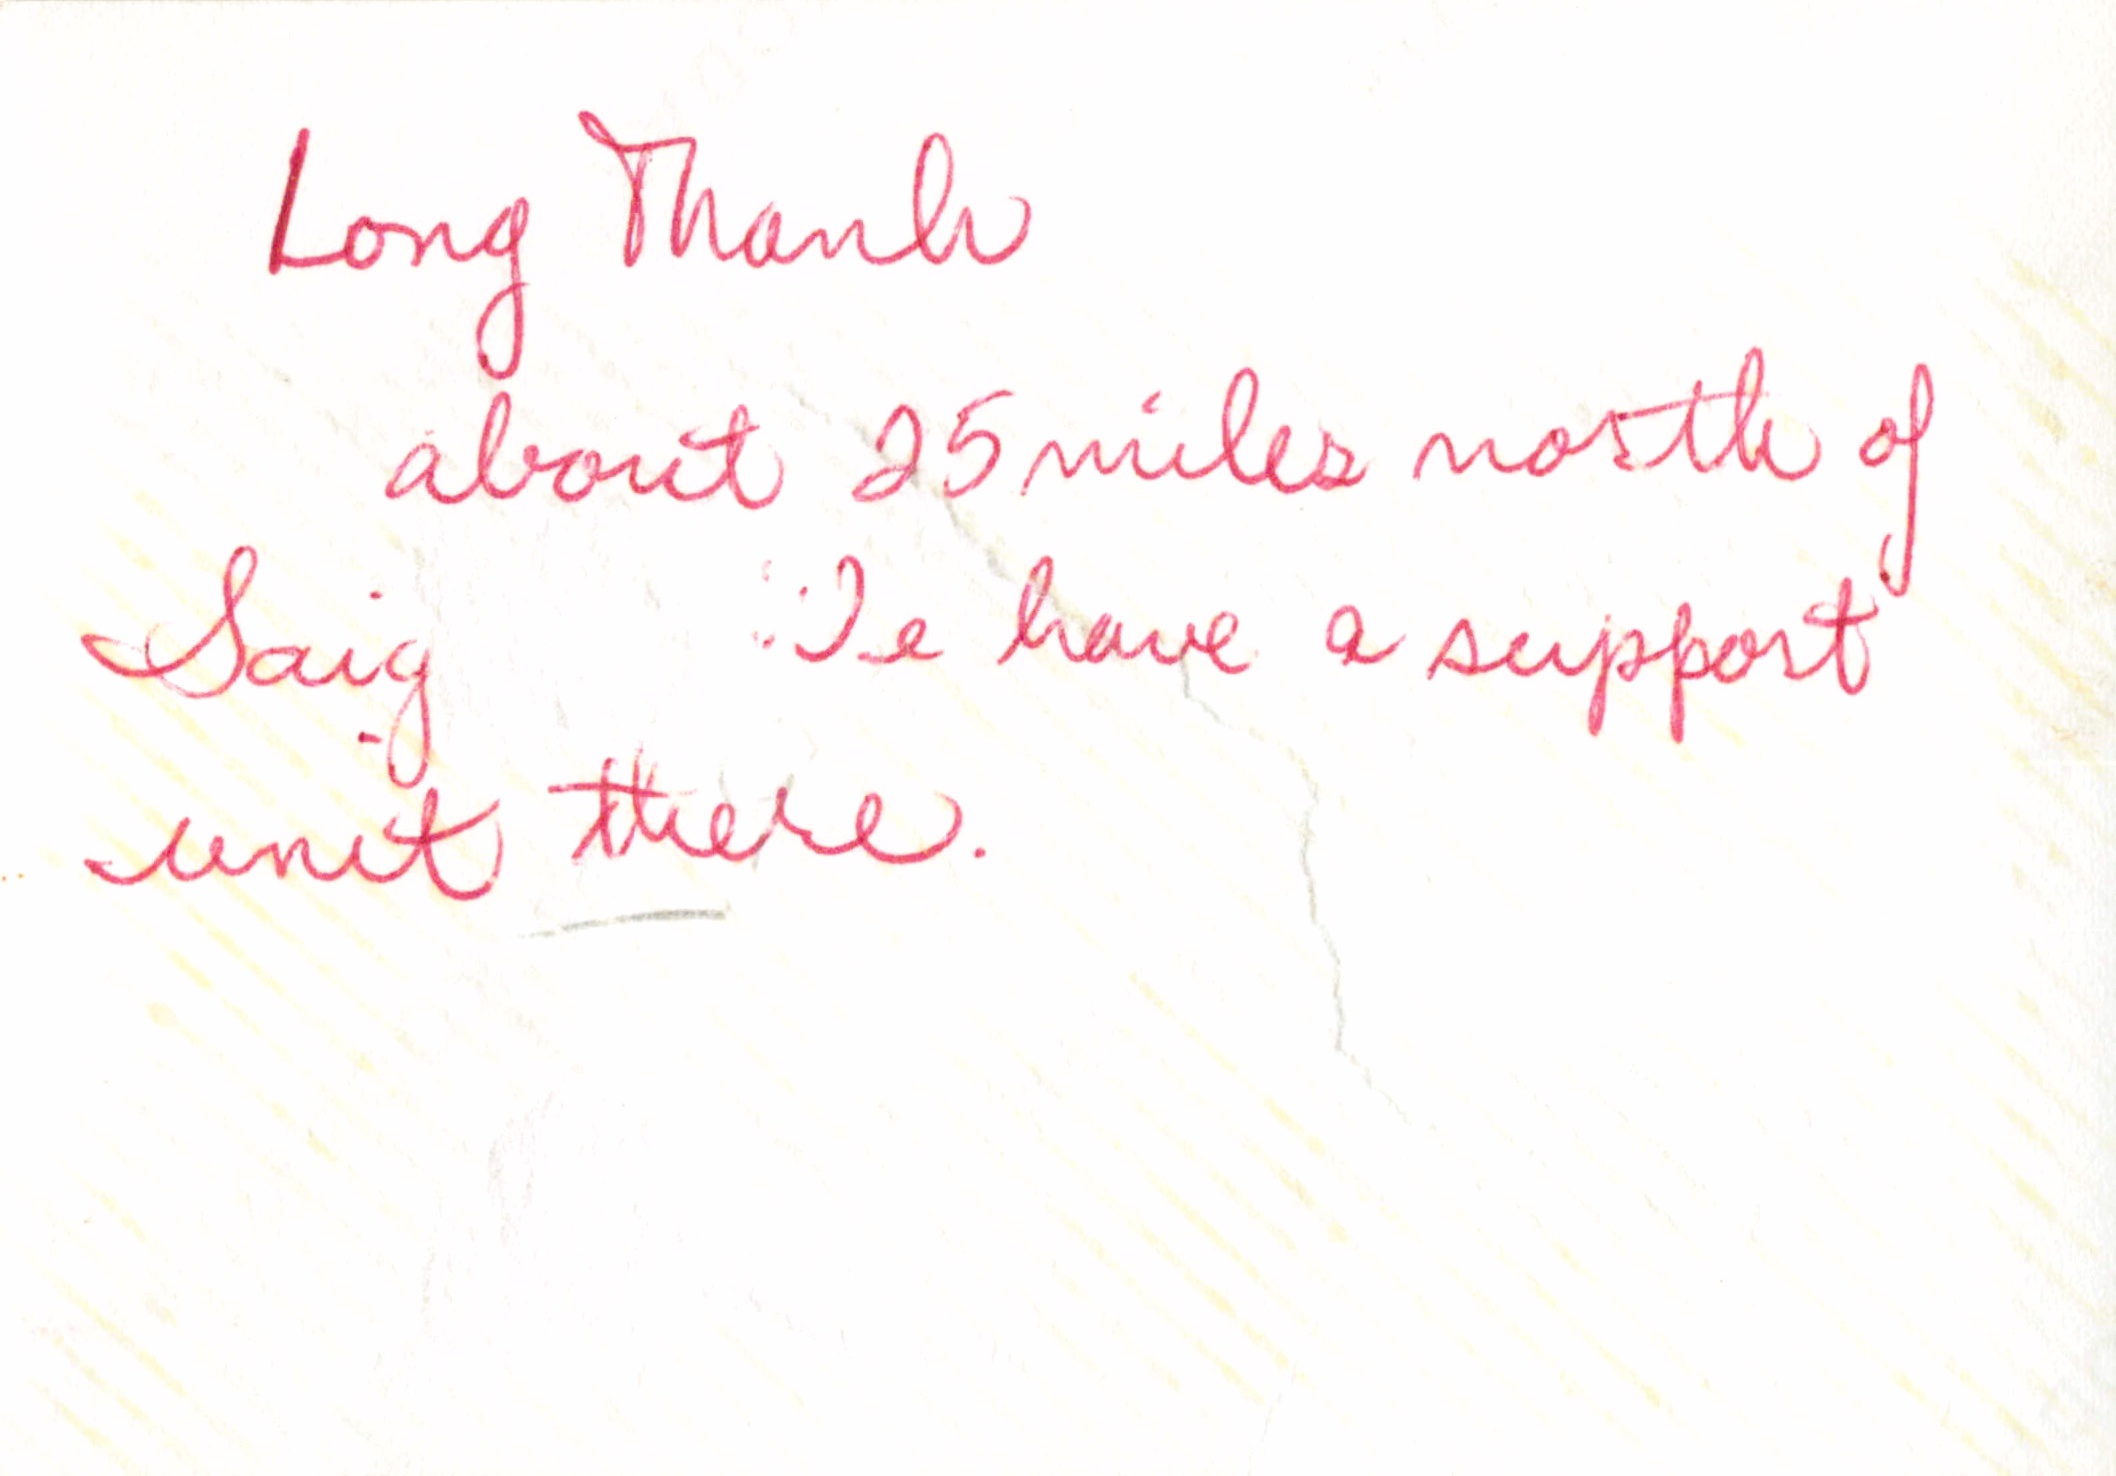 Long Thanh
about 25 miles north of
Saig e have a support
unit there.